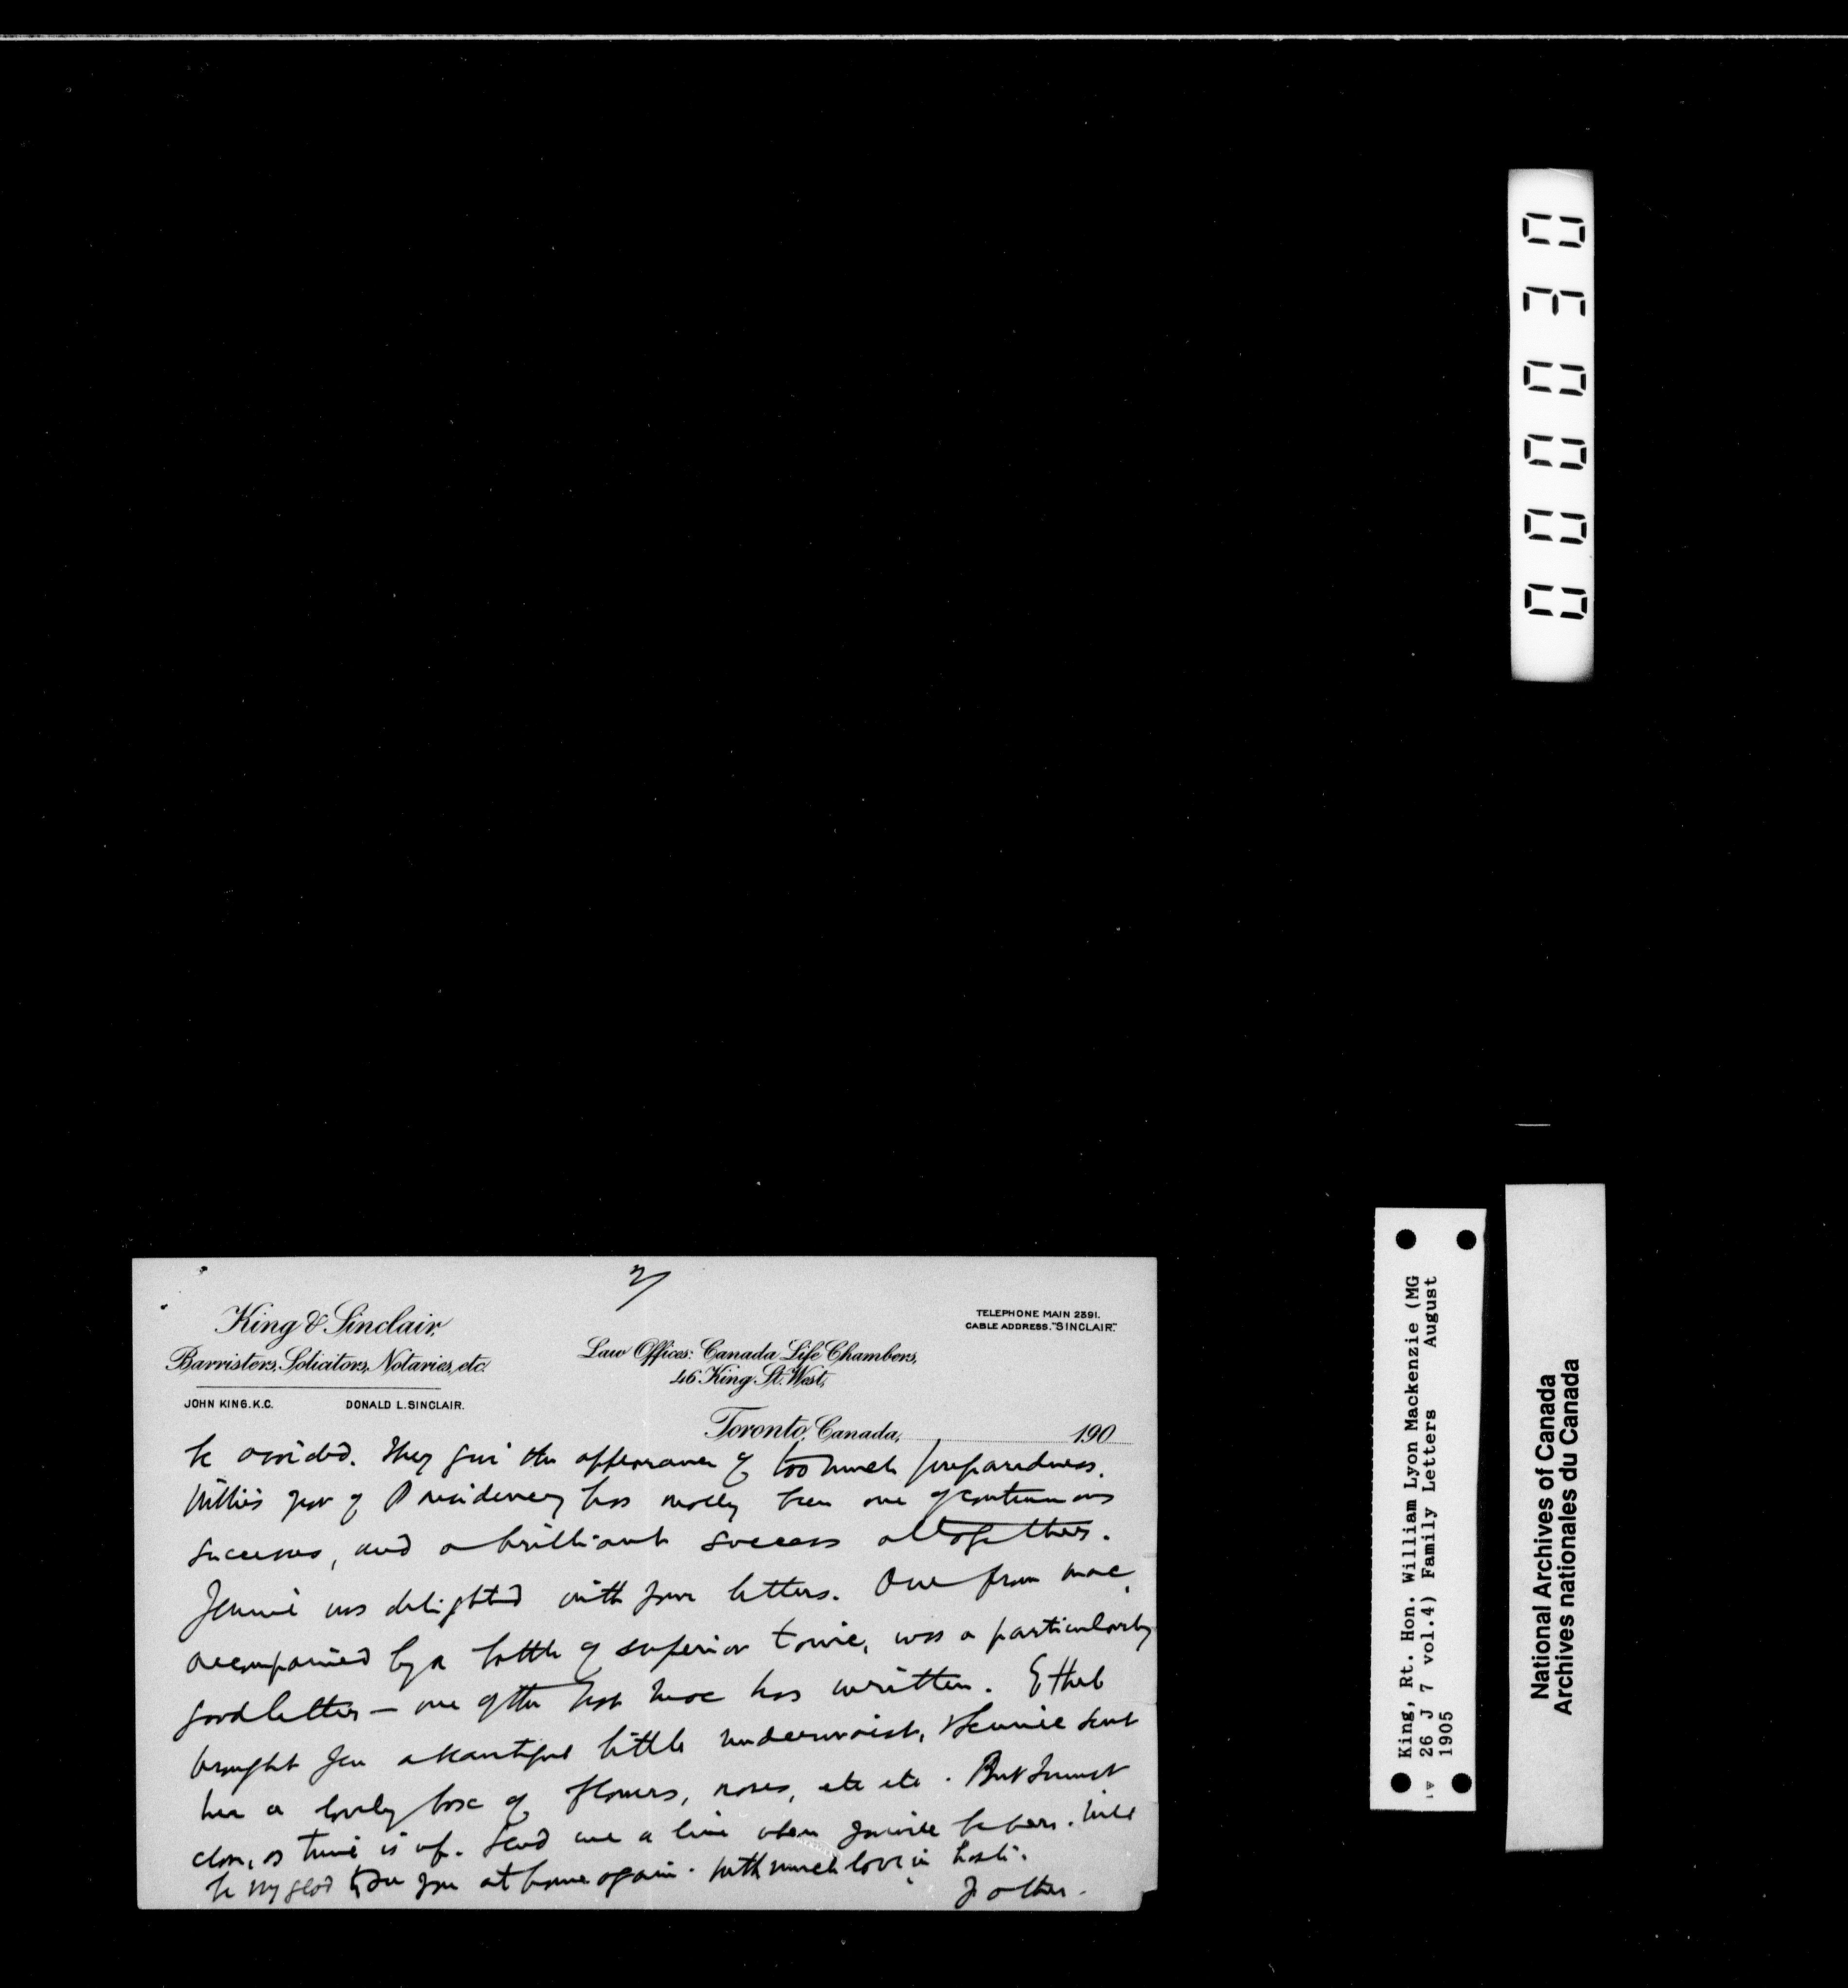 2/
King & Sinclair,
Barristers, Solicitors, Notaries, etc.
JOHN KING. K.C. DONALD L. SINCLAIR.
Law Offices: Canada Life Chambers,
46 King St. West,
TELEPHONE MAIN 2391.
CABLE ADDRESS. "SINCLAIR."
Toronto, Canada, 190
be avoided. They give the appearance of too much preparedness.
Willie's year of Presidency has really been one of continuous
successes, and a brilliant success altogether.
Jennie was delighted with your letters. One from Mac,
accompanied by a bottle of superior tonic, was a particularly
good letter — one of the best Mac has written. Ethel
brought Jen a beautiful little underwaist, & Jennie sent
her a lovely box of flowers, roses, etc etc. But I must
close, as time is up. Send me a line when you'll be here. Will
be very glad to see you at home again. With much love in haste.
Father.
000030
King, Rt. Hon. William Lyon Mackenzie (MG
26 J 7 vol.4) Family Letters August
1905
National Archives of Canada
Archives nationales du Canada